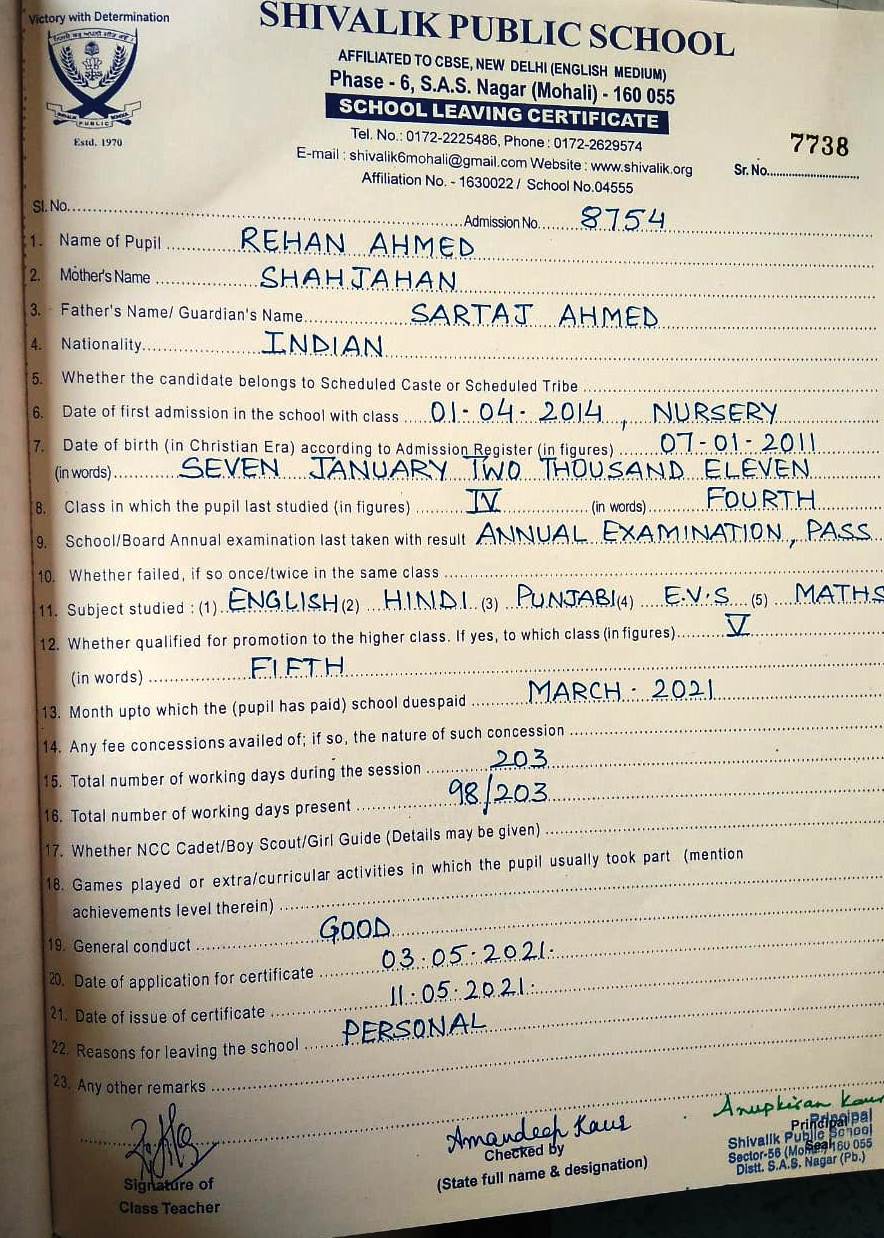 Victory with Determination
SHIVALIK PUBLIC SCHOOL
AFFILIATED TO CBSE, NEW DELHI (ENGLISH MEDIUM)
Phase - 6, S.A.S. Nagar (Mohali) - 160 055
SCHOOL LEAVING CERTIFICATE
PUBLIC
Estd. 1970
Tel. No.: 0172-2225486, Phone : 0172-2629574
E-mail : shivalik6mohali@gmail.com Website : www.shivalik.org
Affiliation No. - 1630022 / School No.04555
7738
Sr. No.
Sl. No. Admission No. 8754
1. Name of Pupil REHAN AHMED
2. Mother's Name SHAHJAHAN
3. Father's Name/ Guardian's Name SARTAJ AHMED
4. Nationality INDIAN
5. Whether the candidate belongs to Scheduled Caste or Scheduled Tribe
6. Date of first admission in the school with class 01-04-2014, NURSERY
7. Date of birth (in Christian Era) according to Admission Register (in figures) 07-01-2011
(in words) SEVEN JANUARY TWO THOUSAND ELEVEN
8. Class in which the pupil last studied (in figures) IV (in words) FOURTH
9. School/Board Annual examination last taken with result ANNUAL EXAMINATION, PASS
10. Whether failed, if so once/twice in the same class
11. Subject studied : (1) ENGLISH (2) HINDI (3) PUNJABI (4) E.V.S (5) MATHS
12. Whether qualified for promotion to the higher class. If yes, to which class (in figures) V
(in words) FIFTH
13. Month upto which the (pupil has paid) school duespaid MARCH - 2021
14. Any fee concessions availed of; if so, the nature of such concession
15. Total number of working days during the session 203
16. Total number of working days present 98/203
17. Whether NCC Cadet/Boy Scout/Girl Guide (Details may be given)
18. Games played or extra/curricular activities in which the pupil usually took part (mention
achievements level therein)
19. General conduct GOOD
20. Date of application for certificate 03.05.2021.
21. Date of issue of certificate 11.05.2021.
22. Reasons for leaving the school PERSONAL
23. Any other remarks
Signature of
Class Teacher
Amandeep Kaur
Checked by
(State full name & designation)
Anupkiran Kaur
Principal
Seal
Principal
Shivalik Public School
Sector-56 (Mohali) 160 055
Distt. S.A.S. Nagar (Pb.)